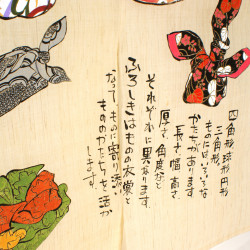 四角形 球形 円形
三角形
ものにはいろいろな
かたちがあります
長さ、幅、高さ
厚さ、角度など
それぞれに異なります
ふろしきはものの衣裳と
なって、ものに寄り添い
もののかたちを活か
します。